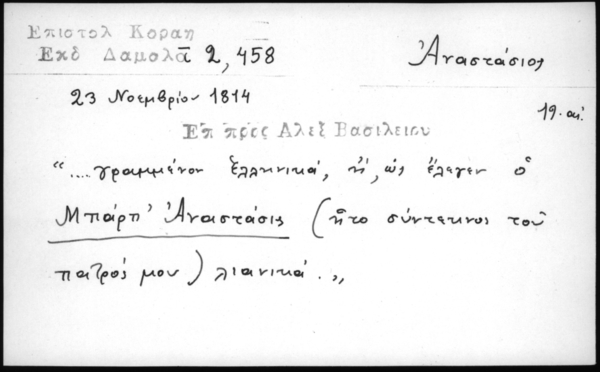 Επιστολ Κοραη
Εκδ Δαμαλᾶ 2, 458
Ἀναστάσιος
23 Νοεμβρίου 1814
19. αἰ.
Επ προς Αλεξ Βασιλειου
"....γραμμένον ἑλληνικά, ἤ, ὡς ἔλεγεν ὁ
Μπάρπ' Ἀναστάσις (ἦτο σύντεκνος τοῦ
πατρός μου) λιανικά.„